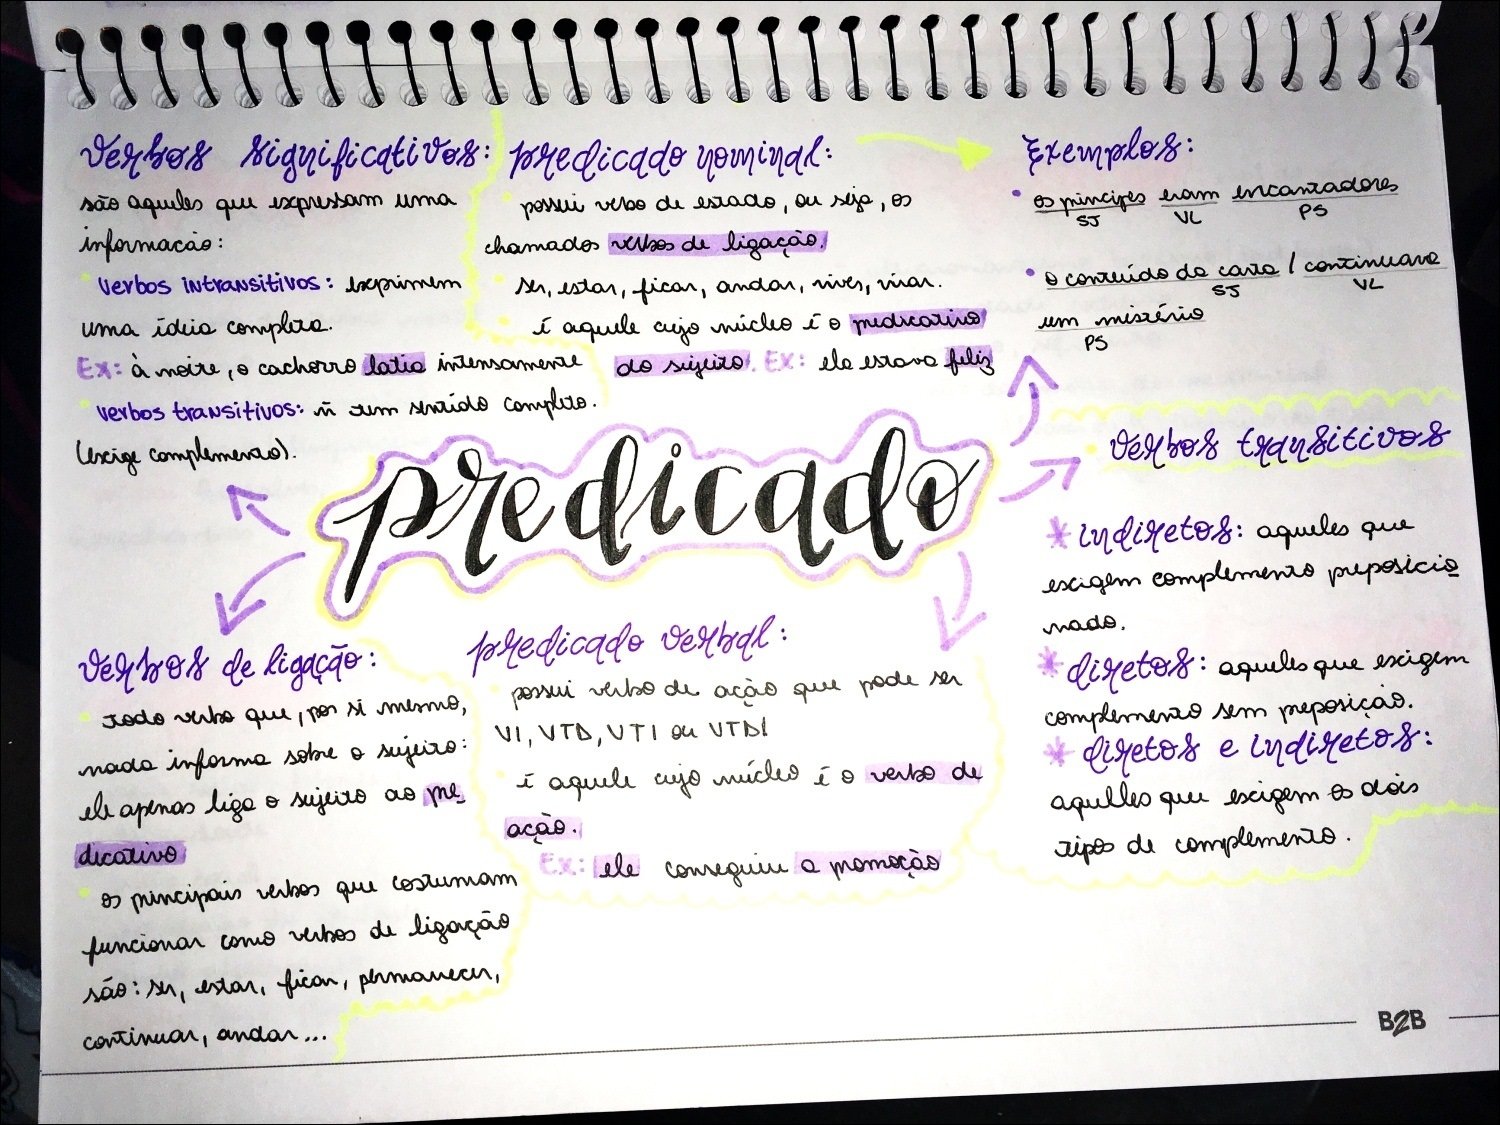 Verbos significativos:
são aqueles que expressam uma
informacão:
verbos intransitivos: exprimem
uma ídeia completa.
Ex: à noite, o cachorro latia intensamente
verbos transitivos: ñ tem sentido completo.
(exige complemento).
predicado nominal:
possui verbo de estado, ou seja, os
chamados verbos de ligação.
ser, estar, ficar, andar, viver, virar.
é aquele cujo núcleo é o predicativo
do sujeito. Ex: ela estava feliz
Exemplos:
os príncipes eram encantadores
SJ VL PS
o conteúdo da carta / continuava
SJ VL
um mistério
PS
predicado
verbos transitivos
* indiretos: aqueles que
exigem complemento preposicio
nado.
* diretos: aqueles que exigem
complemento sem preposição.
* diretos e indiretos:
aquelles que exigem os dois
tipos de complemento.
verbos de ligação:
todo verbo que, por si mesmo,
nada informa sobre o sujeito:
ele apenas liga o sujeito ao pre
dicativo
os principais verbos que costumam
funcionar como verbos de ligação
são: ser, estar, ficar, permanecer,
continuar, andar...
predicado verbal:
possui verbo de ação que pode ser
VI, VTD, VTI ou VTDI
é aquele cujo núcleo é o verbo de
ação.
Ex: ele conseguiu a promoção
B2B